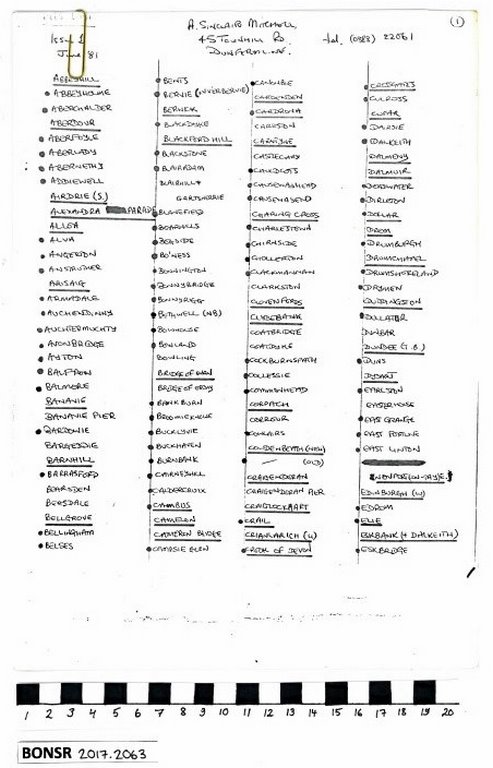 Iss 1
June 81
A. Sinclair Mitchell,
45 Townhill Rd
Dunfermline.
tel. (0383) 22061
(1)
ABBEYHILL
ABBEYHOLME
ABERCHALDER
ABERDOUR
ABERFOYLE
ABERLADY
ABERNETHY
ADDIEWELL
AIRDRIE (S.)
ALEXANDRA PARADE
ALLOA
ALVA
ANCRUM
ANSTRUTHER
ARISAIG
ARMADALE
AUCHENDINNY
AUCHTERMUCHTY
AVONBRIDGE
AYTON
BALFRON
BALMORE
BANAVIE
BANAVIE PIER
BARDOWIE
BARGEDDIE
BARNHILL
BARRASFORD
BEARSDEN
BEASDALE
BELLGROVE
BELLINGHAM
BELSES
BENTS
BERVIE (INVERBERVIE)
BERWICK
BLACKDYKE
BLACKFORD HILL
BLACKSTONE
BLAIRADAM
BLAIRHILL &
GARTSHERRIE
BLANEFIELD
BOARHILLS
BOGSIDE
BO'NESS
BONNINGTON
BONNYBRIDGE
BONNYRIGG
BOTHWELL (NB)
BOWHOUSE
BOWLAND
BOWLING
BRIDGE OF WEIR
BRIDGE OF ORCHY
BANKBURN
BROOMIEKNOWE
BUCKLYVIE
BUCKHAVEN
BURNBANK
CAIRNEYHILL
CALDERCRUIX
CAMBUS
CAMERON
CAMERON BRIDGE
CAMPSIE GLEN
CARDENDEN
CARDRONA
CARGSTON
CARNTYNE
CASTLECARY
CAULDCOTS
CAUSEWAYHEAD
CAUSEWAYEND
CHARING CROSS
CHARLESTOWN
CHIRNSIDE
CHOLLERTON
CLACKMANNAN
CLARKSTON
CLOVENFORDS
CLYDEBANK
COATBRIDGE
COATDYKE
COCKBURNSPATH
COLLESSIE
COMMONHEAD
CORPACH
CORROUR
COWLAIRS
COWDENBEATH (NEW)
— (OLD)
CRAIGENDORAN
CRAIGENDORAN PIER
CRAIGLOCKHART
CRAIL
CRIANLARICH (U)
CROOK OF DEVON
CROSSGATES
CULROSS
CUPAR
DAIRSIE
DALKEITH
DALMENY
DALMUIR
DIRLETON
DOLLAR
DREM
DRUMBURGH
DRUMCHAPEL
DRUMSHORELAND
DRYMEN
DUDDINGSTON
DULLATUR
DUNBAR
DUNDEE (T.B.)
DUNS
DYSART
EARLSTON
EASTERHOUSE
EAST GRANGE
EAST FORTUNE
EAST LINTON
EDINBURGH (W)
EDROM
ELIE
ESKBANK (& DALKEITH)
ESKBRIDGE
1 2 3 4 5 6 7 8 9 10 11 12 13 14 15 16 17 18 19 20
BONSR 2017.2063